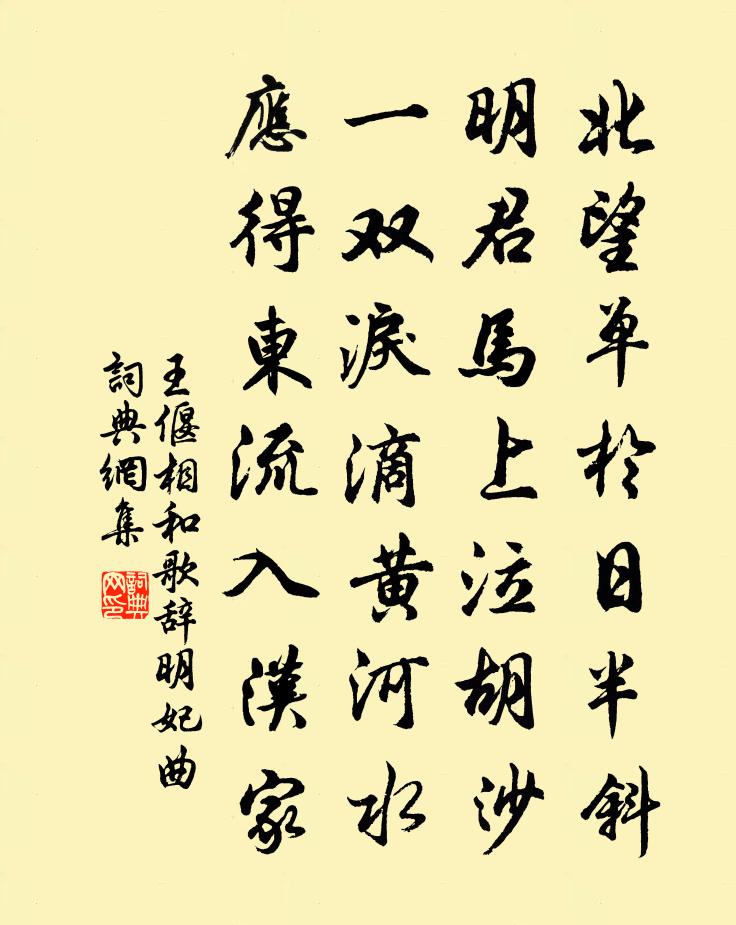 北望单於日半斜
明君馬上泣胡沙
一双淚滴黄河水
應得東流入漢家
王偃相和歌辞明妃曲
詞典網集
詞典网印